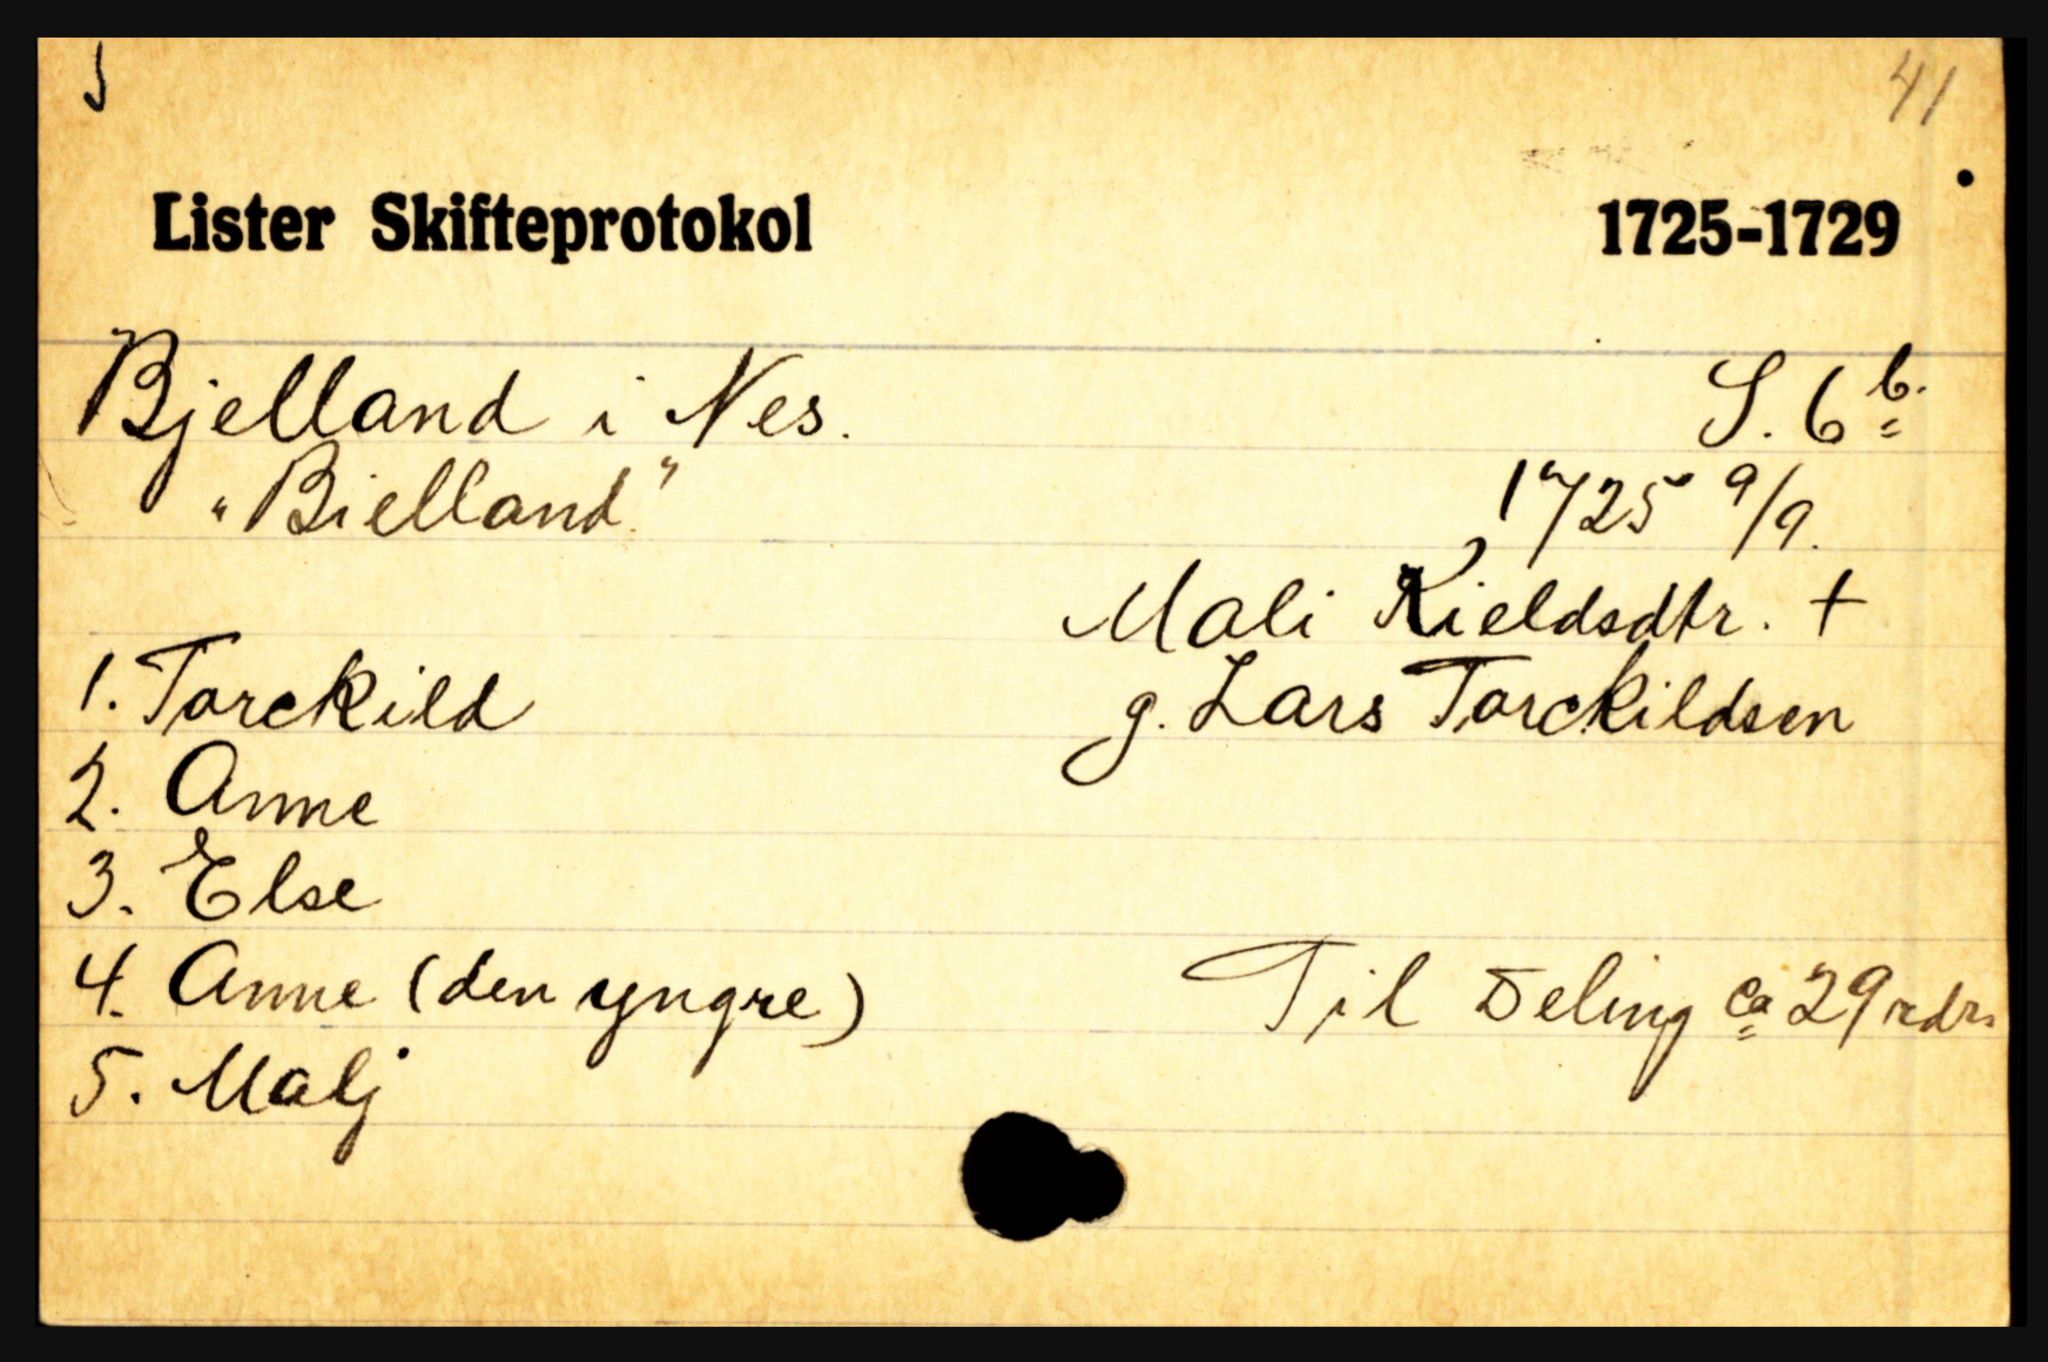 41
Lister Skifteprotokol 1725-1729
Bjelland i Nes. S. 6 b.
"Bielland" 1725 9/9.
Mali Kieldsdtr. †
1. Torckild g. Lars Torckildsen
2. Anne
3. Else
4. Anne (den yngre) Til Deling ca 29 rdr.
5. Malj